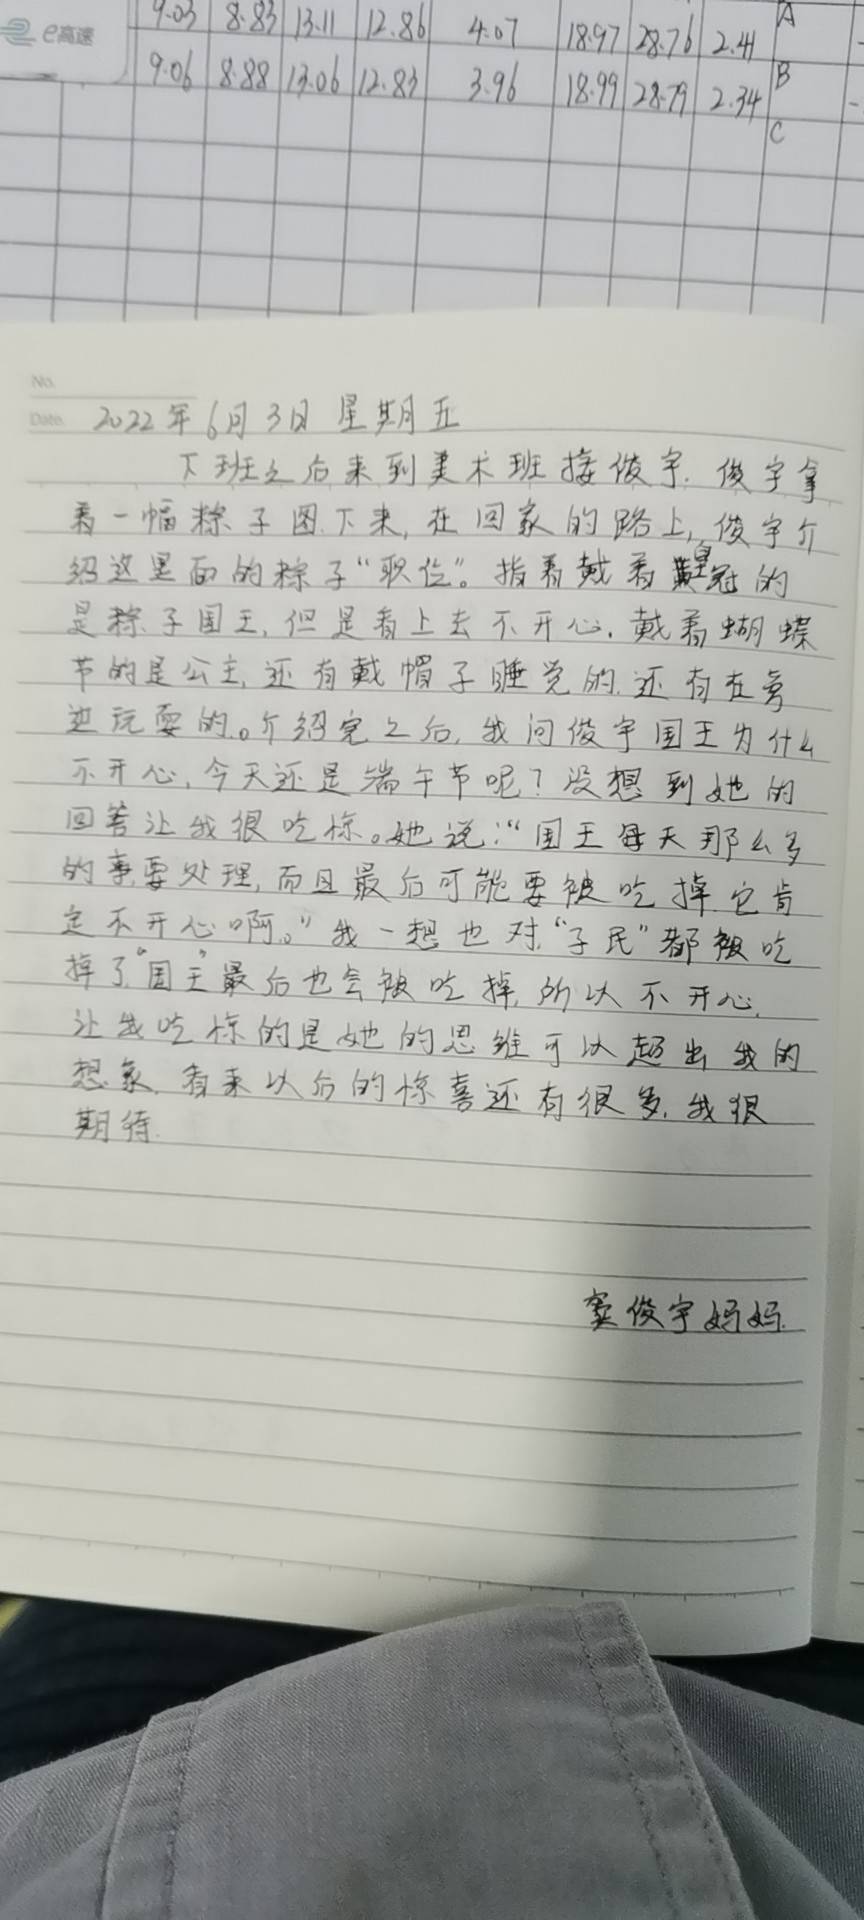 e高速
9.03 8.83 13.11 12.86 4.07 18.97 28.76 2.41 A
9.06 8.88 13.06 12.83 3.96 18.99 28.79 2.34 B
C
No.
Date. 2022年6月3日 星期五
下班之后来到美术班接俊宇.俊宇拿
着一幅粽子图下来,在回家的路上,俊宇介
绍这里面的粽子“职位”。指着戴着皇冠的
是粽子国王,但是看上去不开心.戴着蝴蝶
节的是公主,还有戴帽子睡觉的.还有在旁
边玩耍的。介绍完之后,我问俊宇国王为什么
不开心,今天还是端午节呢?没想到她的
回答让我很吃惊。她说:“国王每天那么多
的事要处理,而且最后可能要被吃掉.它肯
定不开心啊。”我一想也对.“子民”都被吃
掉了“国王”最后也会被吃掉,所以不开心.
让我吃惊的是她的思维可以超出我的
想象.看来以后的惊喜还有很多.我很
期待.
窦俊宇妈妈.